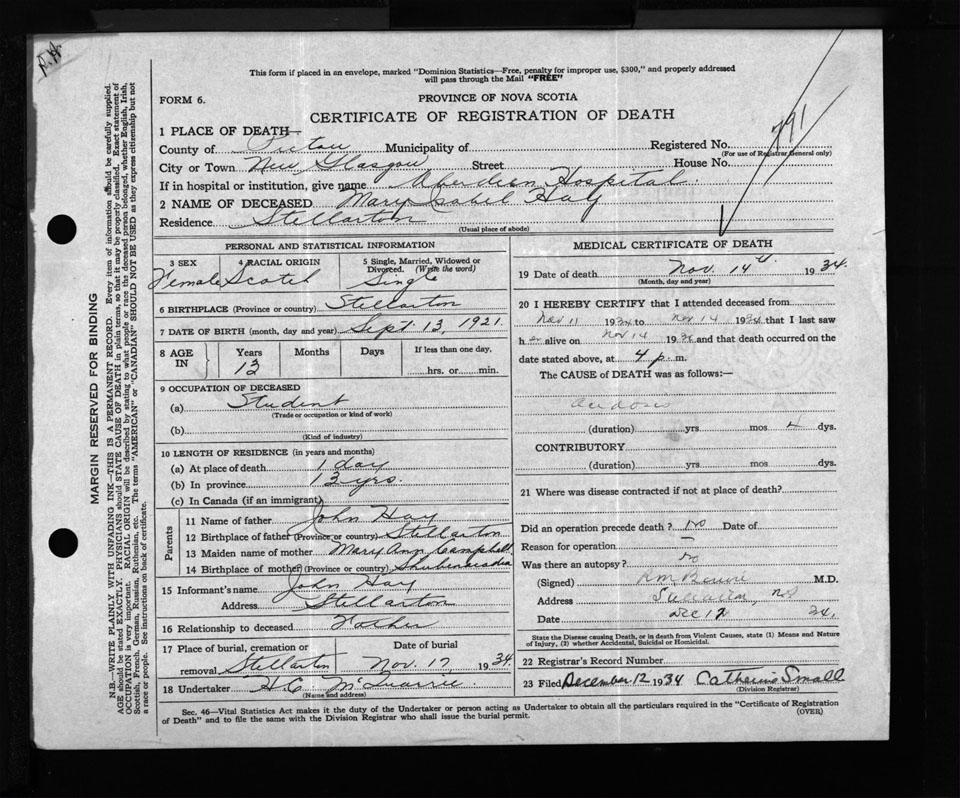 R.H.
This form if placed in an envelope, marked "Dominion Statistics—Free, penalty for improper use, $300," and properly addressed
will pass through the Mail "FREE"
FORM 6.
PROVINCE OF NOVA SCOTIA
CERTIFICATE OF REGISTRATION OF DEATH
1 PLACE OF DEATH—
County of Pictou Municipality of Registered No. 791
(For use of Registrar General only)
City or Town New Glasgow Street House No.
If in hospital or institution, give name Aberdeen Hospital
2 NAME OF DECEASED Mary Isabel Hay
Residence Stellarton
(Usual place of abode)
PERSONAL AND STATISTICAL INFORMATION
3 SEX Female
4 RACIAL ORIGIN Scotch
5 Single, Married, Widowed or Divorced. (Write the word) Single
6 BIRTHPLACE (Province or country) Stellarton
7 DATE OF BIRTH (month, day and year) Sept. 13, 1921.
8 AGE IN Years Months Days If less than one day,
13 hrs. or min.
9 OCCUPATION OF DECEASED
(a) Student
(Trade or occupation or kind of work)
(b)
(Kind of industry)
10 LENGTH OF RESIDENCE (in years and months)
(a) At place of death 1 day
(b) In province 13 yrs.
(c) In Canada (if an immigrant)
Parents
11 Name of father John Hay
12 Birthplace of father (Province or country) Stellarton
13 Maiden name of mother Mary Ann Campbell
14 Birthplace of mother (Province or country) Shubenacadia
15 Informant's name John Hay
Address Stellarton
16 Relationship to deceased Father
17 Place of burial, cremation or Date of burial
removal Stellarton Nov. 17, 1934.
18 Undertaker H.C. McQuarrie
(Name and address)
MEDICAL CERTIFICATE OF DEATH
19 Date of death Nov. 14th 1934.
(Month, day and year)
20 I HEREBY CERTIFY that I attended deceased from
Nov 11 1934 to Nov 14 1934 that I last saw
h er alive on Nov 14 1934 and that death occurred on the
date stated above, at 4 p. m.
The CAUSE of DEATH was as follows:—
Acidosis
(duration) yrs mos 4 dys.
CONTRIBUTORY
(duration) yrs mos dys.
21 Where was disease contracted if not at place of death?
Did an operation precede death? No Date of
Reason for operation —
Was there an autopsy? No
(Signed) M.D.
Address
Date Dec 12 34.
State the Disease causing Death, or in death from Violent Causes, state (1) Means and Nature
of Injury, (2) whether Accidental, Suicidal or Homicidal.
22 Registrar's Record Number
23 Filed December 12 1934 Catherine Small
(Division Registrar)
Sec. 46—Vital Statistics Act makes it the duty of the Undertaker or person acting as Undertaker to obtain all the particulars required in the "Certificate of Registration
of Death" and to file the same with the Division Registrar who shall issue the burial permit.
(OVER)
MARGIN RESERVED FOR BINDING
N.B.—WRITE PLAINLY WITH UNFADING INK—THIS IS A PERMANENT RECORD. Every item of information should be carefully supplied.
AGE should be stated EXACTLY. PHYSICIANS should STATE CAUSE OF DEATH in plain terms, so that it may be properly classified. Exact statement of
OCCUPATION is very important. RACIAL ORIGIN will be described by stating to what people or race the deceased person belonged, whether English, Irish,
Scottish, French, German, Russian, Ruthenian, etc. The terms "AMERICAN" or "CANADIAN" SHOULD NOT BE USED as they express citizenship but not
a race or people. See instructions on back of certificate.